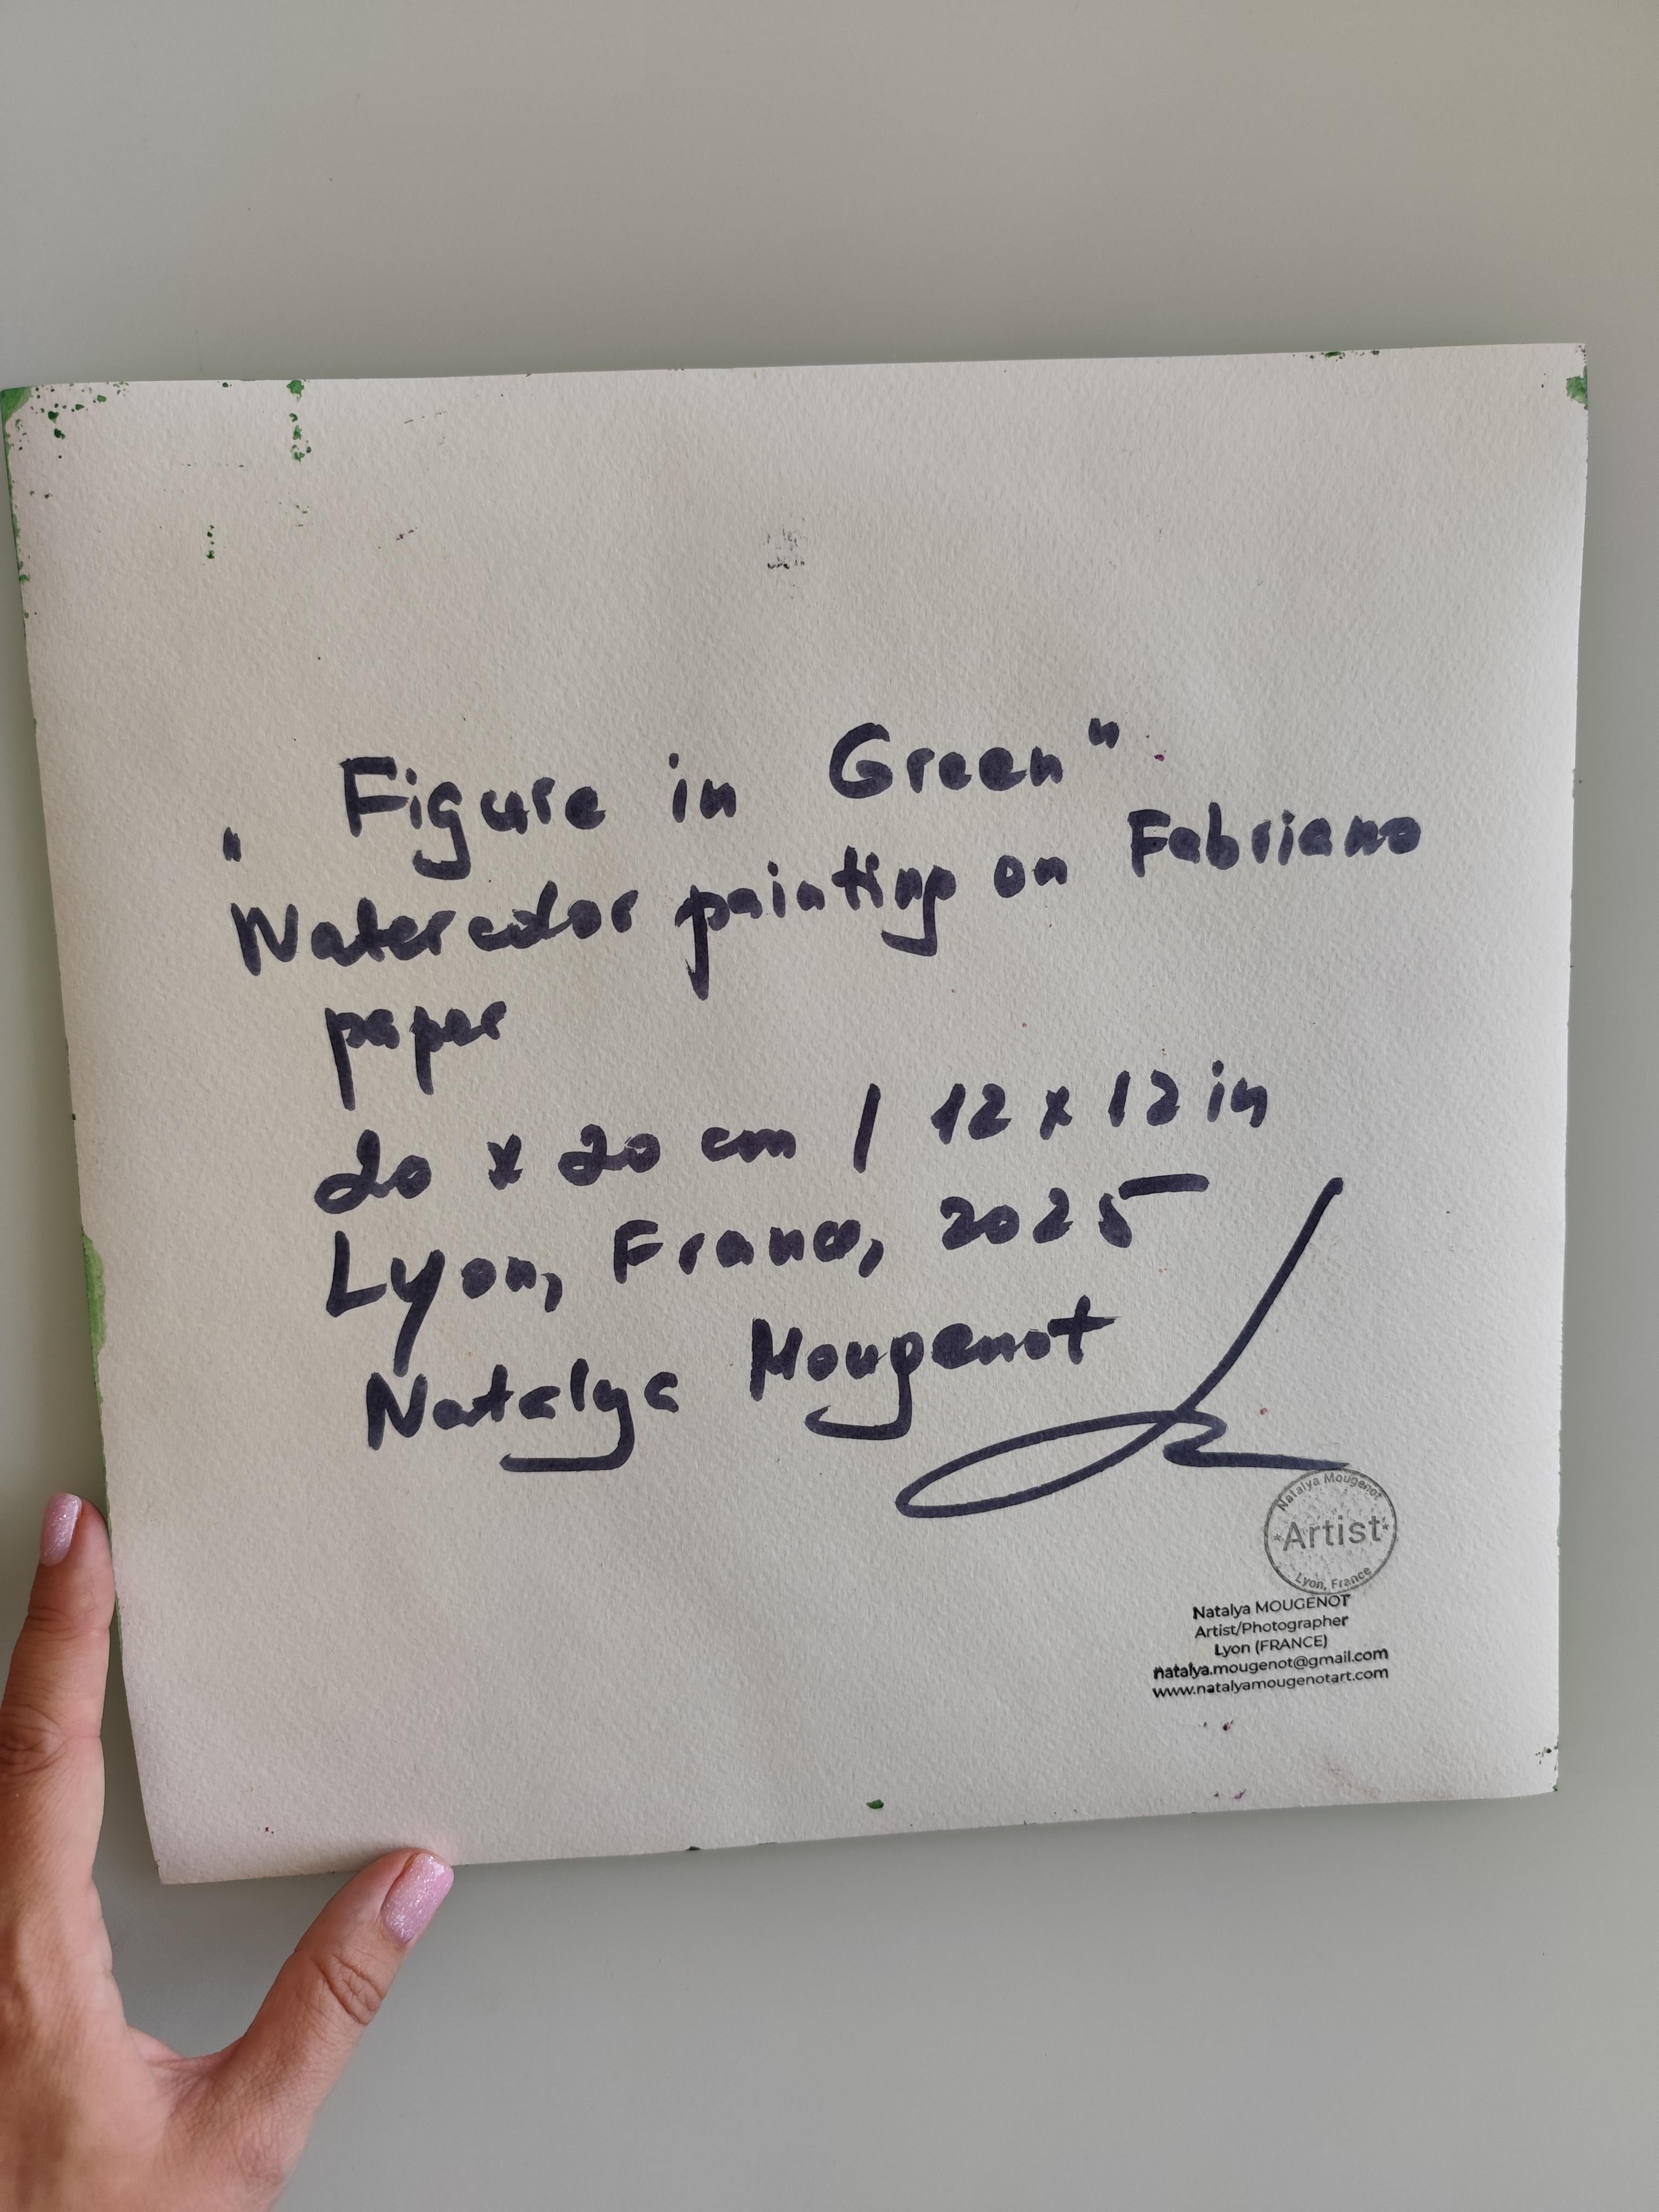 "Figure in Green"
Watercolor painting on Fabriano
paper
20 x 20 cm / 12 x 12 in
Lyon, France, 2025
Natalya Mougenot
Natalya Mougenot
*Artist*
Lyon, France
Natalya MOUGENOT
Artist/Photographer
Lyon (FRANCE)
natalya.mougenot@gmail.com
www.natalyamougenotart.com